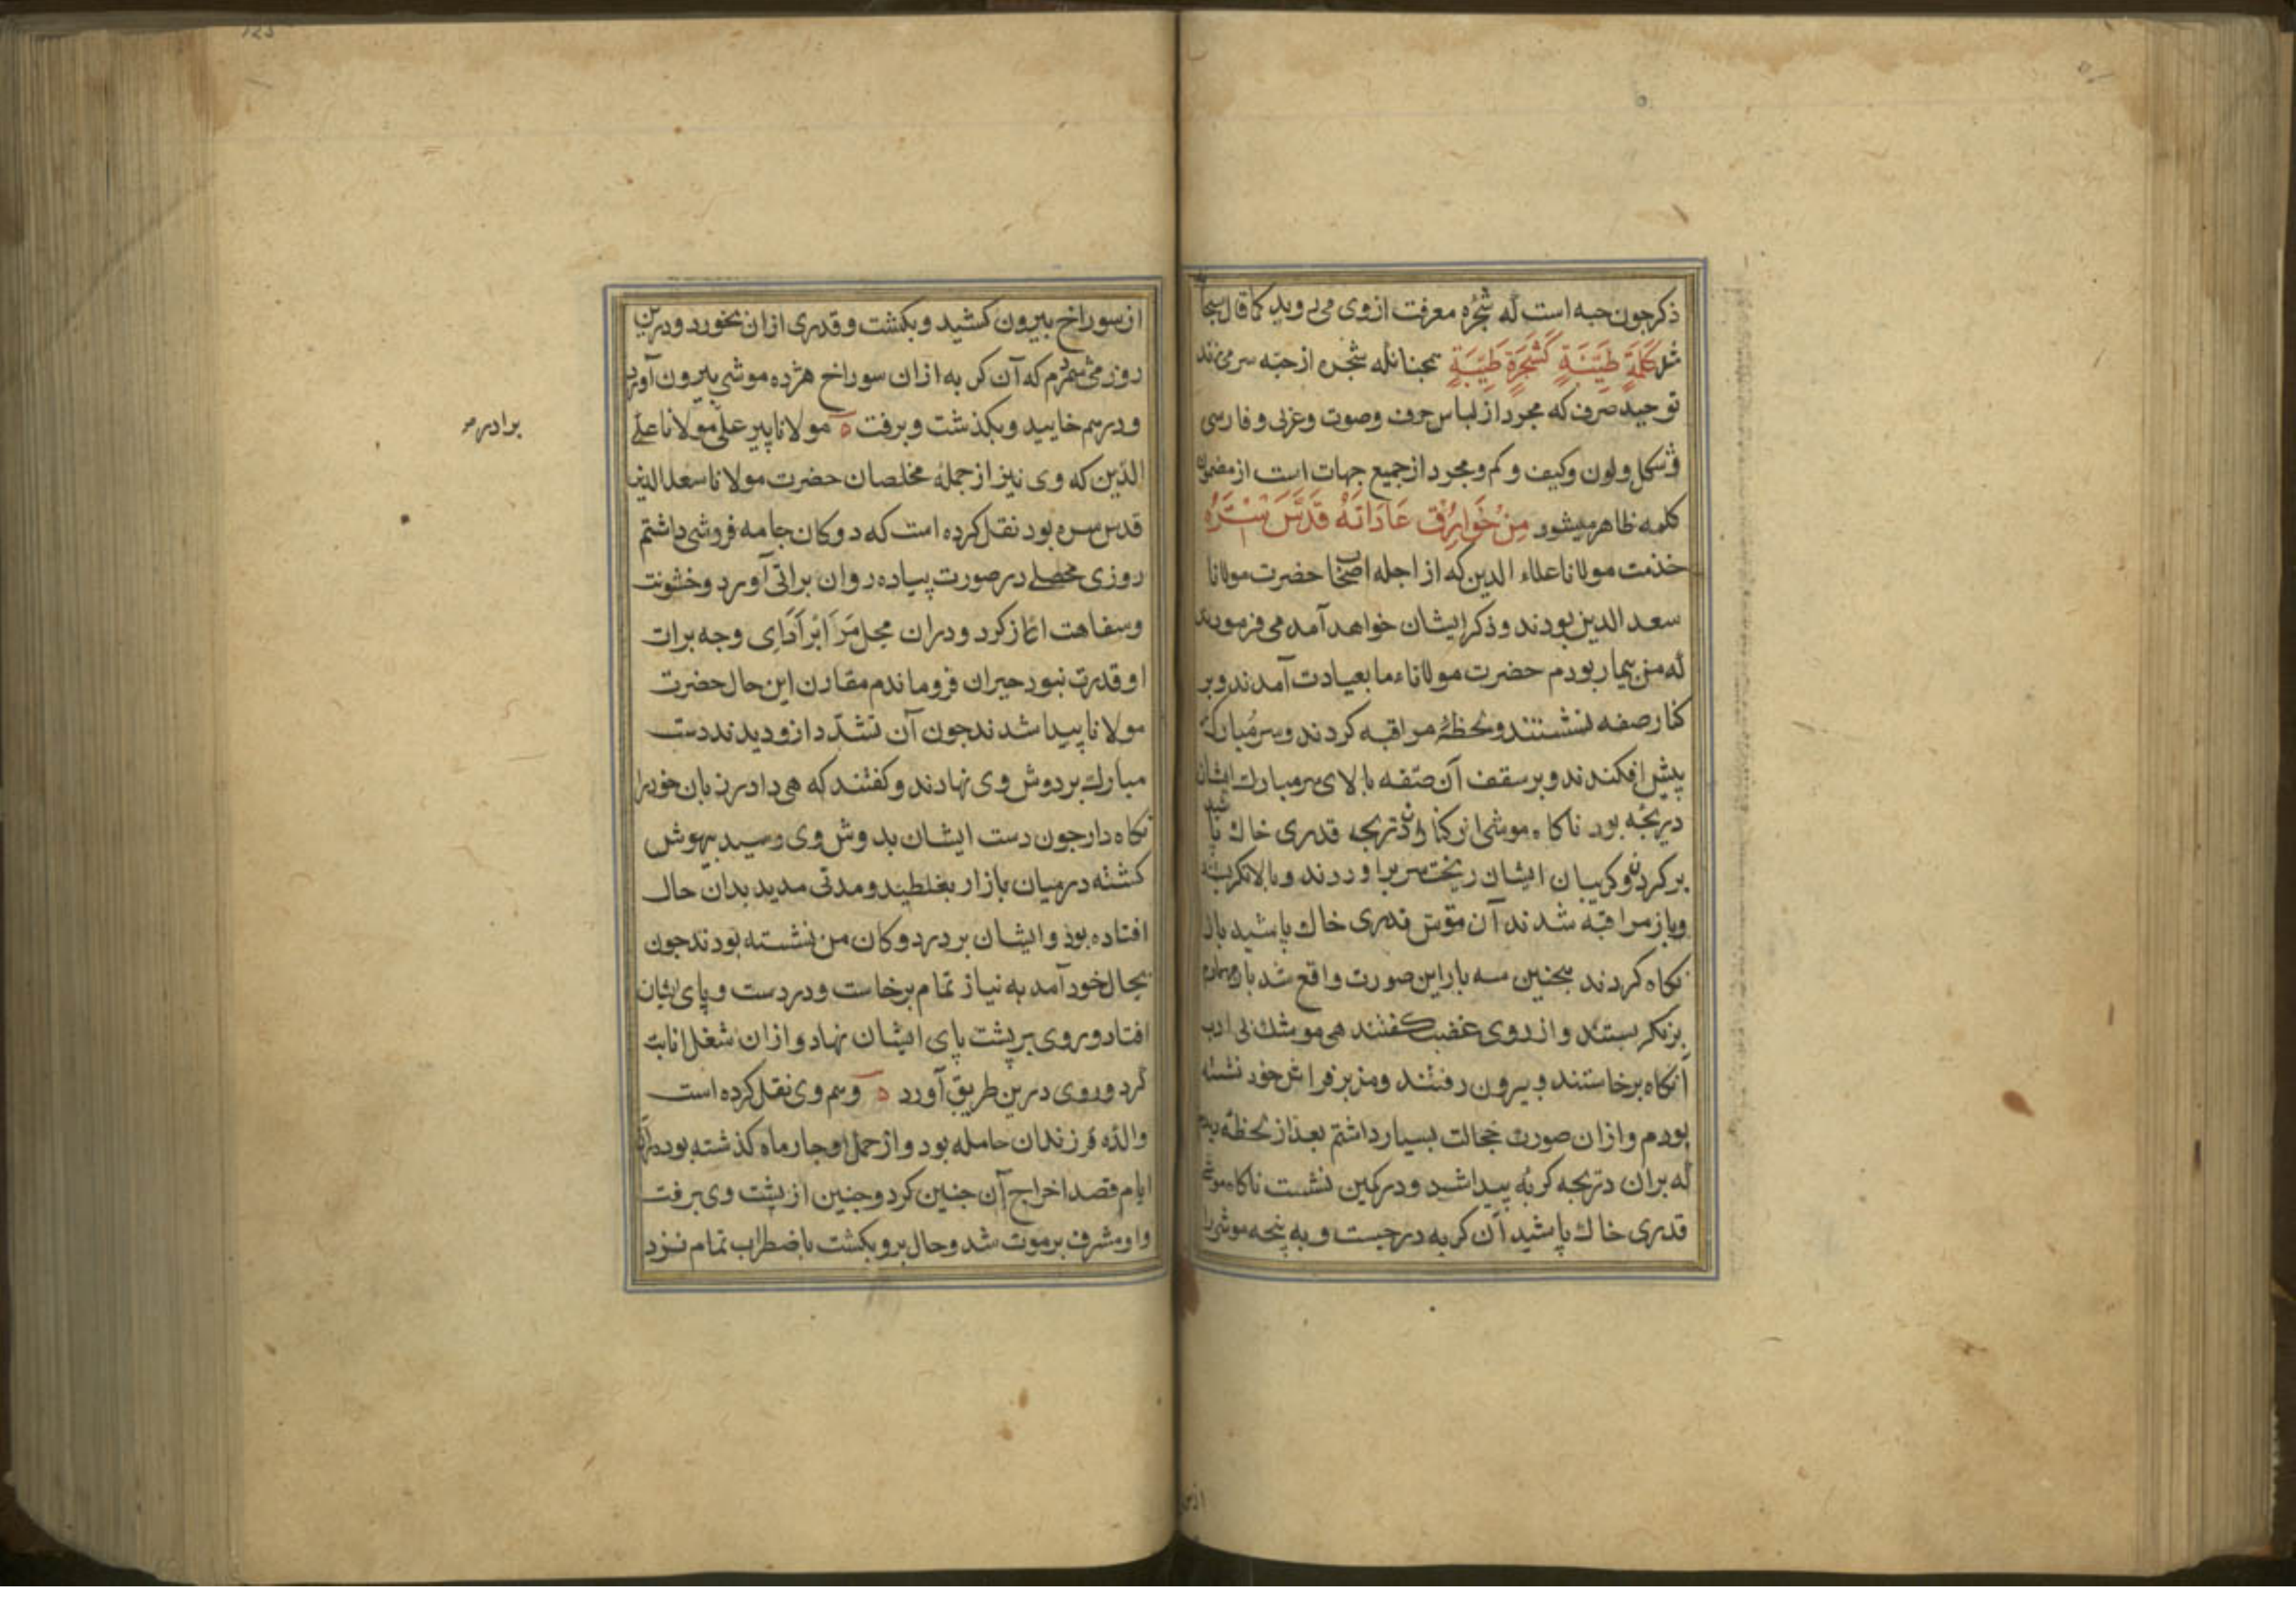 ذکر چون حبه است که شجرۀ معرفت از وی می روید کما قال سبحانه
مثل کَلِمَةٍ طَیِّبَةٍ کَشَجَرَةٍ طَیِّبَةٍ همچنانکه شجره از حبّه سر می زند
توحید صرف که مجرد از لباس حرف وصوت وعربی وفارسی
وشکل ولون وکیف وکم ومجرد از جمیع جهات است از مضمون
کلمه ظاهر میشود مِنْ خَوَارِقِ عَادَاتِهْ قَدَّسَ سِتْرَهُ
خدمت مولانا علاء الدین که از اجله اصحاب حضرت مولانا
سعد الدین بودند وذکر ایشان خواهد آمد می فرمودند
که من بیمار بودم حضرت مولاناء ما بعیادت آمدند وبر
کنار صفه نشستند ولحظۀ مراقبه کردند وسر مبارک
پیش افکندند وبر سقف آن صفه بالای سر مبارک ایشان
دریچه بود ناکاه موشی از کنار دریچه قدری خاک پاشید
بر کردن وکریبان ایشان ریخت سر براوردند وبالا نکریسته
وباز مراقبه شدند آن موش قدری خاک پاشید بالا
نکاه کردند همچنین سه بار این صورت واقع شد بار چهارم
بر نکریستند واز روی غضب کفتند هی موشک بی ادب
آنکاه برخاستند وبیرون رفتند ومن بر فراش خود نشسته
بودم وازان صورت خجالت بسیار داشتم بعد از لحظه دیدم
که بران دریچه کربه پیدا شد ودر کمین نشست ناکاه موشی
قدری خاک پاشید آن کربه در جست وبه پنجه موش را
از سوراخ بیرون کشید وبکشت وقدری ازان بخورد ودرین
روز می شمردم که آن کربه ازان سوراخ هژده موش بیرون آورد
ودرهم خایید وبکذشت وبرفت ه مولانا پیر علی مولانا علی
الدّین که وی نیز از جملۀ مخلصان حضرت مولانا سعد الدین
قدس سره بود نقل کرده است که دوکان جامه فروشی داشتم
روزی محصلی در صورت پیاده روان براتی آورد وخشونت
وسفاهت اغاز کرد ودران محل مَرَا بَرْ اَدَایِ وجه برات
او قدرت نبود حیران فروماندم مقارن این حال حضرت
مولانا پیدا شدند چون آن تشدّد ازو دیدند دست
مبارک بر دوش وی نهادند وکفتند که هی دادر زبان خود را
نکاه دار چون دست ایشان بدوش وی رسید بیهوش
کشته در میان بازار بغلطید ومدتی مدید بدان حال
افتاده بود وایشان بر در دوکان من نشسته بودند چون
بحال خود آمد به نیاز تمام برخاست ودر دست وپای ایشان
افتاد وروی بر پشت پای ایشان نهاد وازان شغل انابت
کرد وروی درین طریق آورد ه وهم وی نقل کرده است
والدۀ فرزندان حامله بود واز حمل او چار ماه کذشته بود
ایام قصد اخراج آن جنین کرد وجنین از پشت وی برفت
واو مشرف بر موت شد وحال برو بکشت باضطراب تمام نزد
برادر